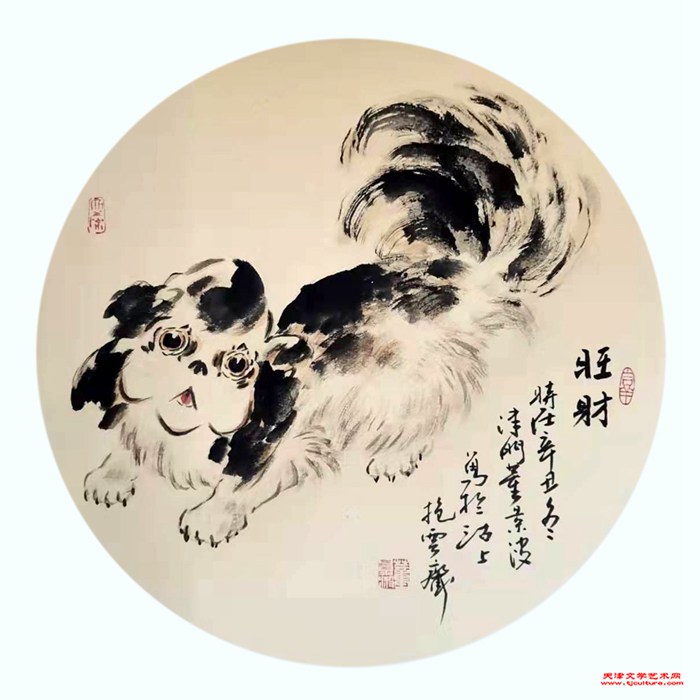 旺财
时在辛丑冬
津门董景波
写於沽上
抱云斋
天津文学艺术网
www.tjculture.com